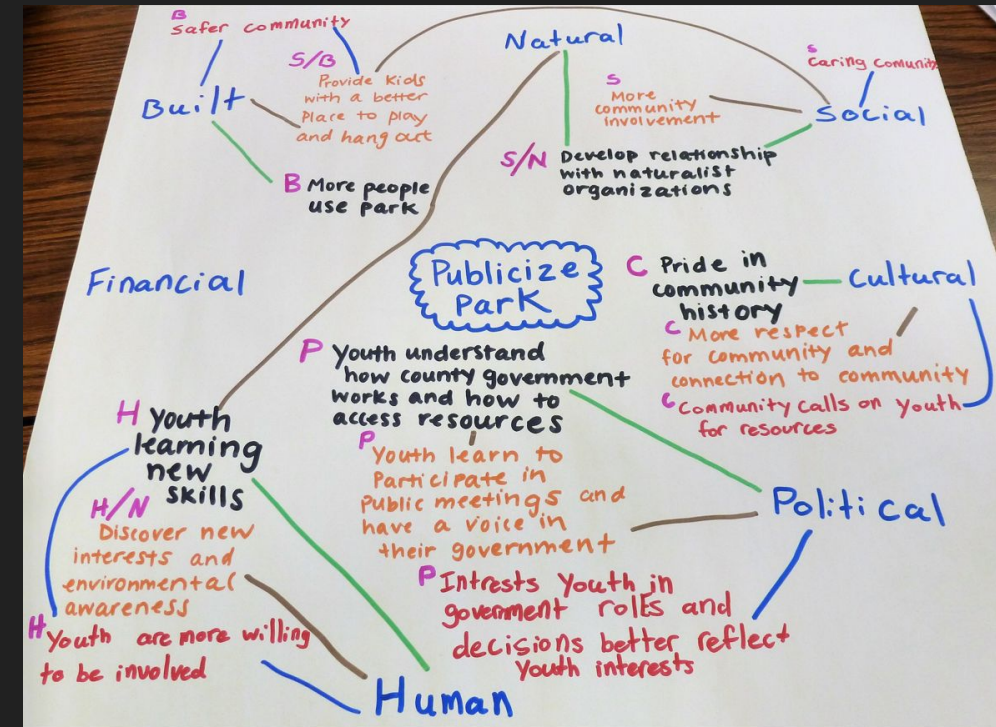 B
Safer community
S/B
Provide Kids
with a better
Place to play
and hang out
Built
B More people
use park
Natural
S
More
community
involvement
S
Caring Comunit
Social
S/N Develop relationship
with naturalist
organizations
Financial
Publicize
Park
C Pride in
community
history
Cultural
C More respect
for community and
connection to community
C Community calls on youth
for resources
P Youth understand
how county government
works and how to
access resources
P
Youth learn to
Participate in
Public meetings and
have a voice in
their government
Political
P Intrests Youth in
government roles and
decisions better reflect
Youth interests
H Youth
learning
new
skills
H/N
Discover new
interests and
environmental
awareness
H Youth are more willing
to be involved
Human